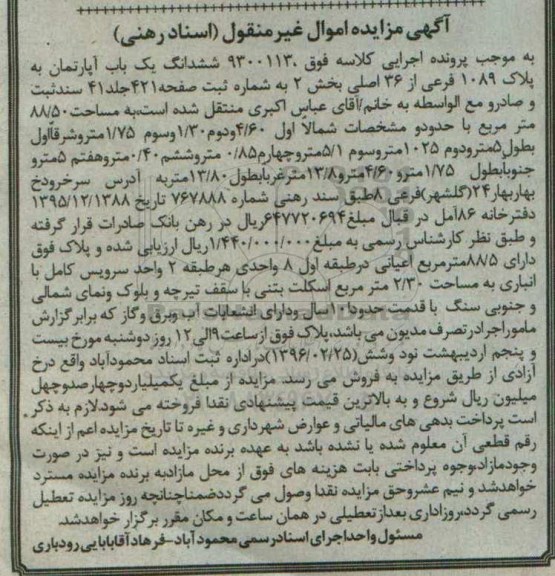 آگهی مزایده اموال غیرمنقول (اسناد رهنی)
به موجب پرونده اجرایی کلاسه فوق ۹۳۰۰۱۱۳۰ ششدانگ یک باب آپارتمان به
پلاک ۱۰۸۹ فرعی از ۳۶ اصلی بخش ۲ به شماره ثبت صفحه۴۲۱جلد۴۱ سندثبت
و صادرو مع الواسطه به خانم/آقای عباس اکبری منتقل شده است،به مساحت۸۸/۵۰
متر مربع با حدودو مشخصات شمالاً اول ۴/۶۰ودوم۱/۳۰وسوم ۱/۷۵متروشرقاًاول
بطول۵مترودوم ۱۰۲۵متروسوم ۵/۱متروچهارم۰/۸۵ متروششم۰/۴۰متروهفتم ۵مترو
جنوباًبطول ۱/۷۵مترو۴/۶۰مترو۱۳/۸مترغربابطول۱۳/۸۰متربه آدرس سرخرودخ
بهاربهار۲۴(گلشهر)فرعی ۸طبق سند رهنی شماره ۷۶۷۸۸۸ تاریخ ۱۳۹۵/۱۲/۱۳۸۸
دفترخانه ۸۶آمل در قبال مبلغ۶۴۷۷۲۰۶۹۴ریال در رهن بانک صادرات قرار گرفته
و طبق نظر کارشناس رسمی به مبلغ۱/۴۴۰/۰۰۰/۰۰۰ریال ارزیابی شده و پلاک فوق
دارای ۸۸/۵مترمربع اعیانی درطبقه اول ۸ واحدی هرطبقه ۲ واحد سرویس کامل با
انباری به مساحت ۲/۳۰ متر مربع اسکلت بتنی با سقف تیرچه و بلوک ونمای شمالی
و جنوبی سنگ با قدمت حدودا۱۰سال ودارای انشعابات آب وبرق وگاز که برابرگزارش
ماموراجرادرتصرف مدیون می باشد،پلاک فوق ازساعت۹الی۱۲ روز دوشنبه مورخ بیست
و پنجم اردیبهشت نود وشش(۱۳۹۶/۰۲/۲۵)دراداره ثبت اسناد محمودآباد واقع درخ
آزادی از طریق مزایده به فروش می رسد. مزایده از مبلغ یکمیلیاردوچهارصدوچهل
میلیون ریال شروع و به بالاترین قیمت پیشنهادی نقدا فروخته می شود.لازم به ذکر
است پرداخت بدهی های مالیاتی و عوارض شهرداری و غیره تا تاریخ مزایده اعم از اینکه
رقم قطعی آن معلوم شده یا نشده باشد به عهده برنده مزایده است و نیز در صورت
وجودمازاد،وجوه پرداختی بابت هزینه های فوق از محل مازادبه برنده مزایده مسترد
خواهدشد و نیم عشروحق مزایده نقدا وصول می گردد.ضمناچنانچه روز مزایده تعطیل
رسمی گردد،روزاداری بعدازتعطیلی در همان ساعت و مکان مقرر برگزار خواهدشد.
مسئول واحداجرای اسنادرسمی محمودآباد-فرهادآقابابایی رودباری